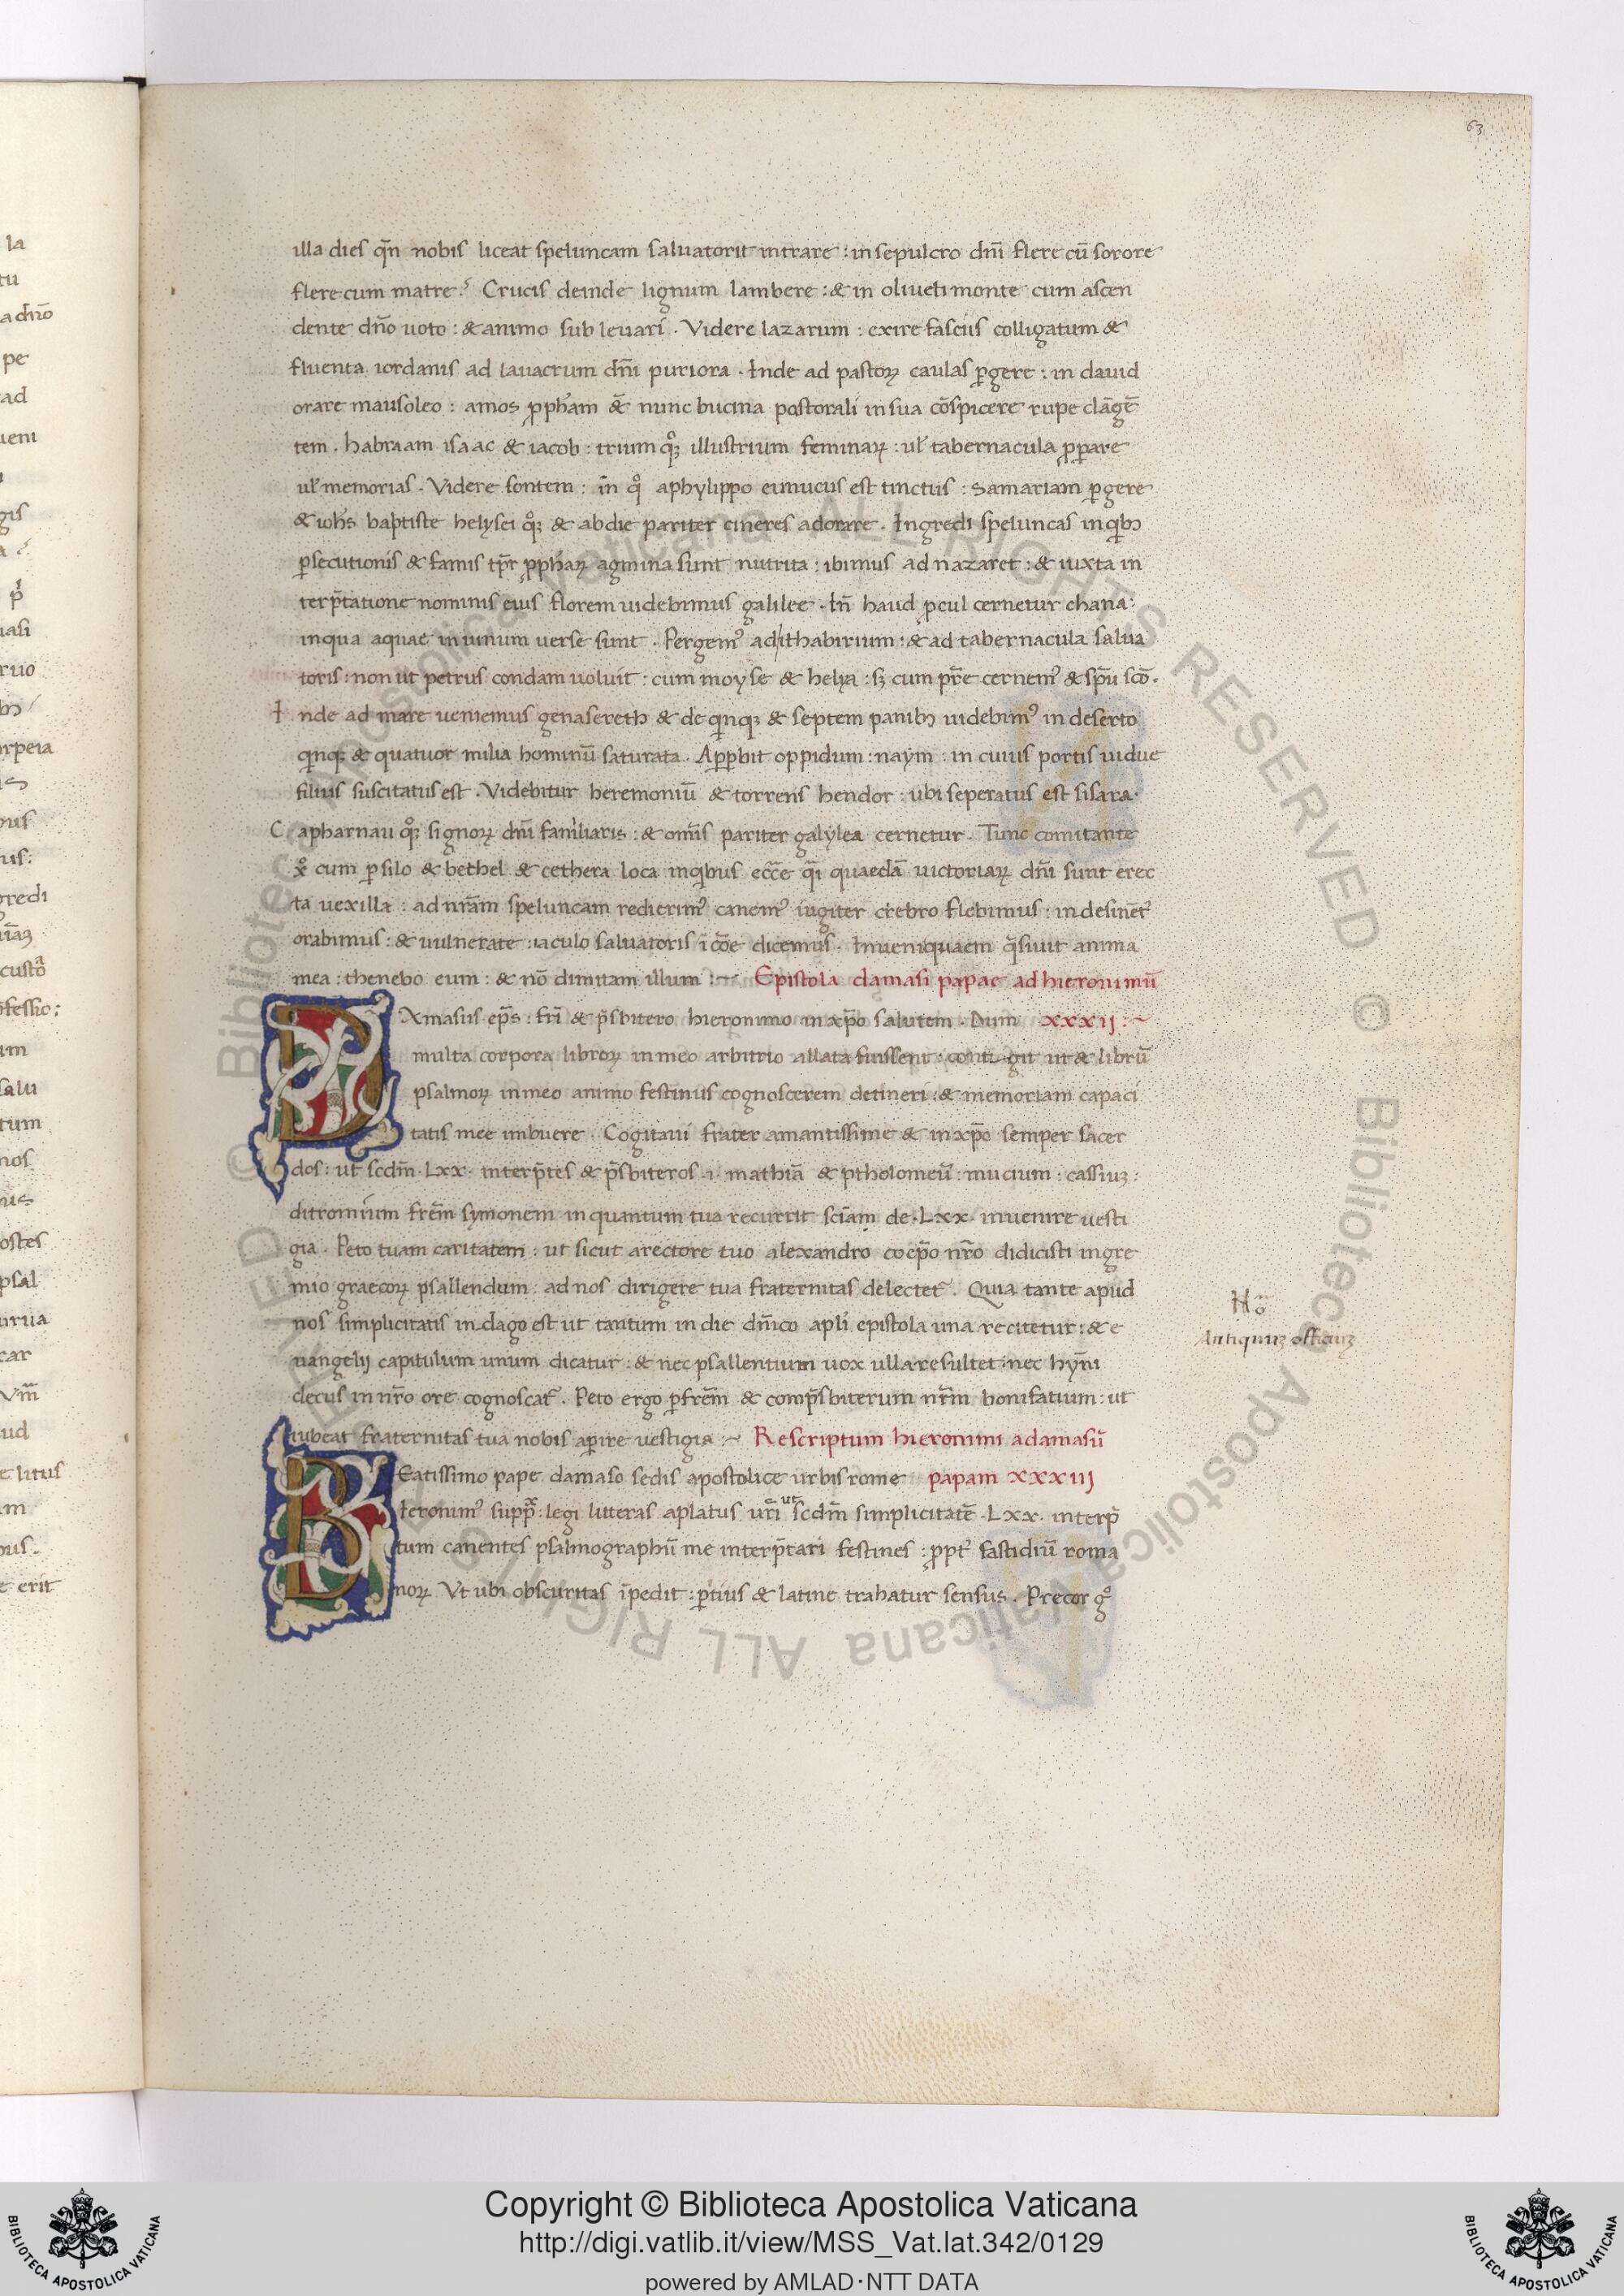 63
illa dies qn̄ nobis liceat speluncam saluatoris intrare : in sepulcro dn̄i flere cū sorore
flere cum matre? Crucis deinde lignum lambere : & in oliueti monte cum ascen
dente dn̄o uoto : & animo sub leuari . Videre lazarum : exire fasciis colligatum &
fluenta iordanis ad lauacrum dn̄i puriora . Inde ad pastoꝝ caulas ꝑgere : in dauid
orare mausoleo : amos ꝓpham & nunc bucina pastorali in sua cōspicere rupe clāgē
tem . habraam isaac & iacob : trium qꝫ illustrium feminaꝝ : ul̄ tabernacula
ul̄ memorias . Videre fontem : in qͦ aphylippo eunucus est tinctus : Samariam ꝑgere
& ioh̄s baptiste helysei qꝫ & abdie pariter cineres adorare . Ingredi speluncas in qͥbꝫ
ꝑsecutionis & famis tꝑ̄r ꝓphaꝝ agmina sunt nutrita : ibimus ad nazaret : & iuxta in
terp̄tatione nominis eius florem uidebimus galilee . In̄ haud ꝓcul cernetur chana :
inqua aquae in uinum uerse sunt . Pergemꝰ ad ithabirium : & ad tabernacula salua
toris : non ut petrus condam uoluit : cum moyse & helya : sꝫ cum pr̄e cernemꝰ & sp̄u sc̄o .
I nde ad mare ueniemus genasereth & de qͥnqꝫ & septem panibꝫ uidebimꝰ in deserto
qͥnqꝫ & quatuor milia hominū saturata . Apꝑbit oppidum : naym : in cuius portis uidue
filius suscitatus est . Videbitur heremoniū & torrens hendor : ubi seperatus est sisara .
C apharnau qꝫ signoꝝ dn̄i familiaris : & om̄is pariter galylea cernetur . Tunc comitante
xͦ cum ꝑ silo & bethel & cethera loca inqͥbus ecc̄e qͣi quaedā uictoriaꝝ dn̄i sunt erec
ta uexilla : ad nr̄am speluncam redierimꝰ canemꝰ iugiter crebro flebimus : indesinētͬ
orabimus : & uulnerate iaculo saluatoris ī cōe dicemus . Inueni quaem q̄siuit anima
mea : thenebo eum : & nō dimitam illum :~ Epistola damasi papae ad hieronimū
DAmasus ep̄s : fr̄i & p̄sbitero hieronimo in xp̄o salutem . Dum xxxij :~
multa corpora libroꝝ in meo arbitrio allata fuissent : conti git ut & librū
psalmoꝝ in meo animo festinus cognoscerem detineri : & memoriam capaci
tatis mee imbuere . Cogitaui frater amantissime & in xp̄o semper sacer
dos : ut scdm̄ . Lxx . interp̄tes & p̄sbiteros .i. mathiā & ptholomeū : mucium : cassiuꝫ :
ditromium frēm symonem in quantum tua recurrit sciam̄ de . Lxx . inuenire uesti
gia . Peto tuam caritatem : ut sicut a rectore tuo alexandro coep̄o nr̄o didicisti in gre
mio graecoꝝ psallendum : ad nos dirigere tua fraternitas delectetͬ . Quia tante apud
nos simplicitatis in dago est ut tantum in die dn̄ico apl̄i epistola una recitetur : & e
uangelij capitulum unum dicatur : & nec psallentium uox ulla resultet : nec hym̄i
decus in nr̄o ore cognoscatͬ . Peto ergo ꝑ frēm & comp̄sbiterum nr̄m bonifatium : ut
iubeat fraternitas tua nobis aꝑire uestigia :~ Rescriptum hieronimi a damasū
BEatissimo pape damaso sedis apostolice urbis rome papam xxxiij
Ieronimꝰ supp̄x : legi litteras aplatus ur̄i ut scdm̄ simplicitatē . Lxx . interp̄
tum canentes psalmographū me interp̄tari festines : ꝓptͬ fastidiū roma
noꝝ Vt ubi obscuritas īpedit : ꝑtius & latine trahatur sensus . Precor gͦ
Antiquuꝫ officiuꝫ
Copyright © Biblioteca Apostolica Vaticana
http://digi.vatlib.it/view/MSS_Vat.lat.342/0129
powered by AMLAD·NTT DATA